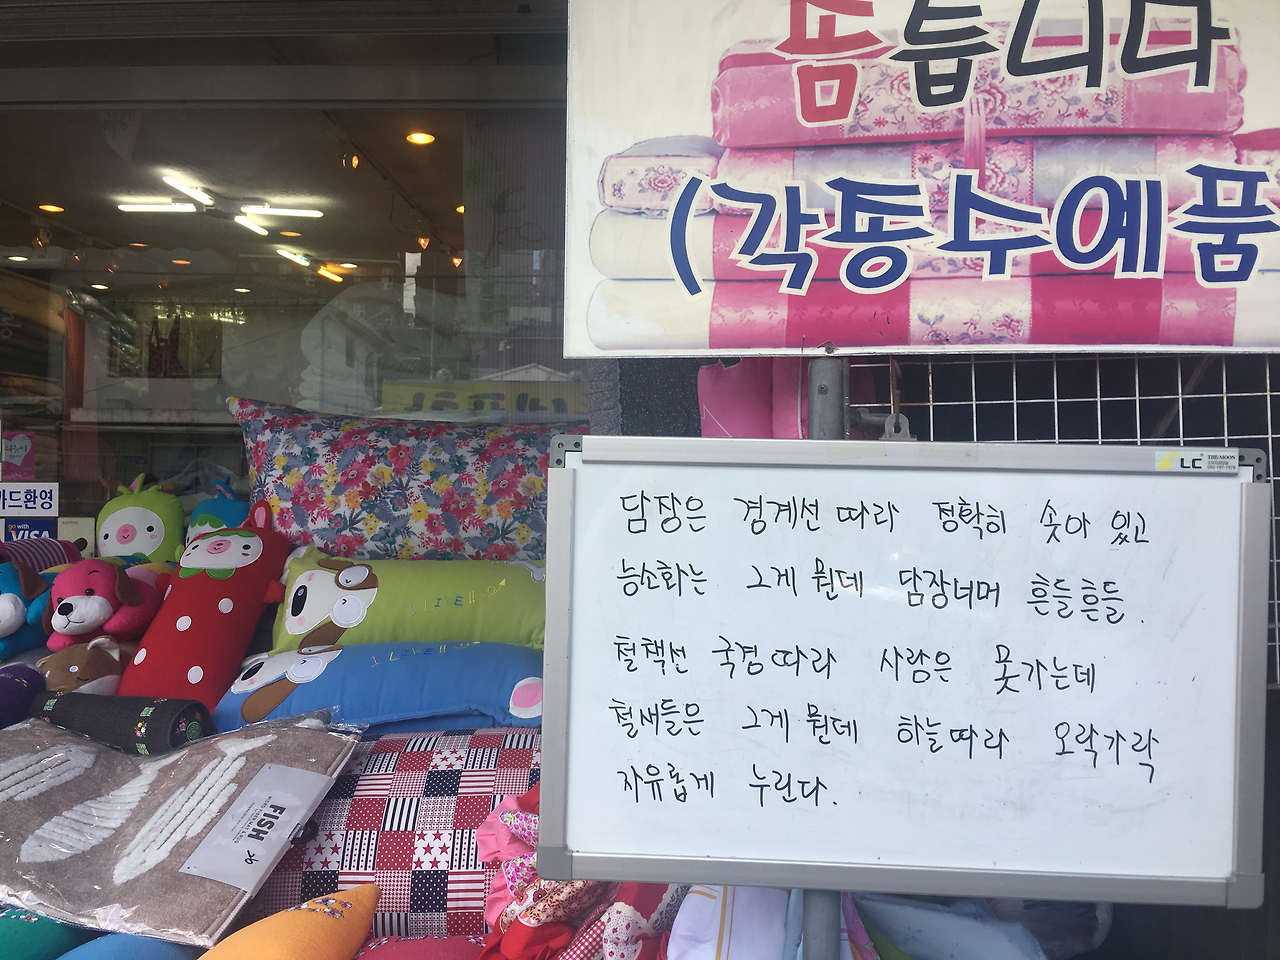 솜틉니다
(각종수예품
LC
THE-MOON
담장은 경계선 따라 정확히 솟아 있고
능소화는 그게 뭔데 담장너머 흔들흔들.
철책선 국경따라 사람은 못가는데
철새들은 그게 뭔데 하늘따라 오락가락
자유롭게 누린다.
카드환영
go with
VISA
FISH